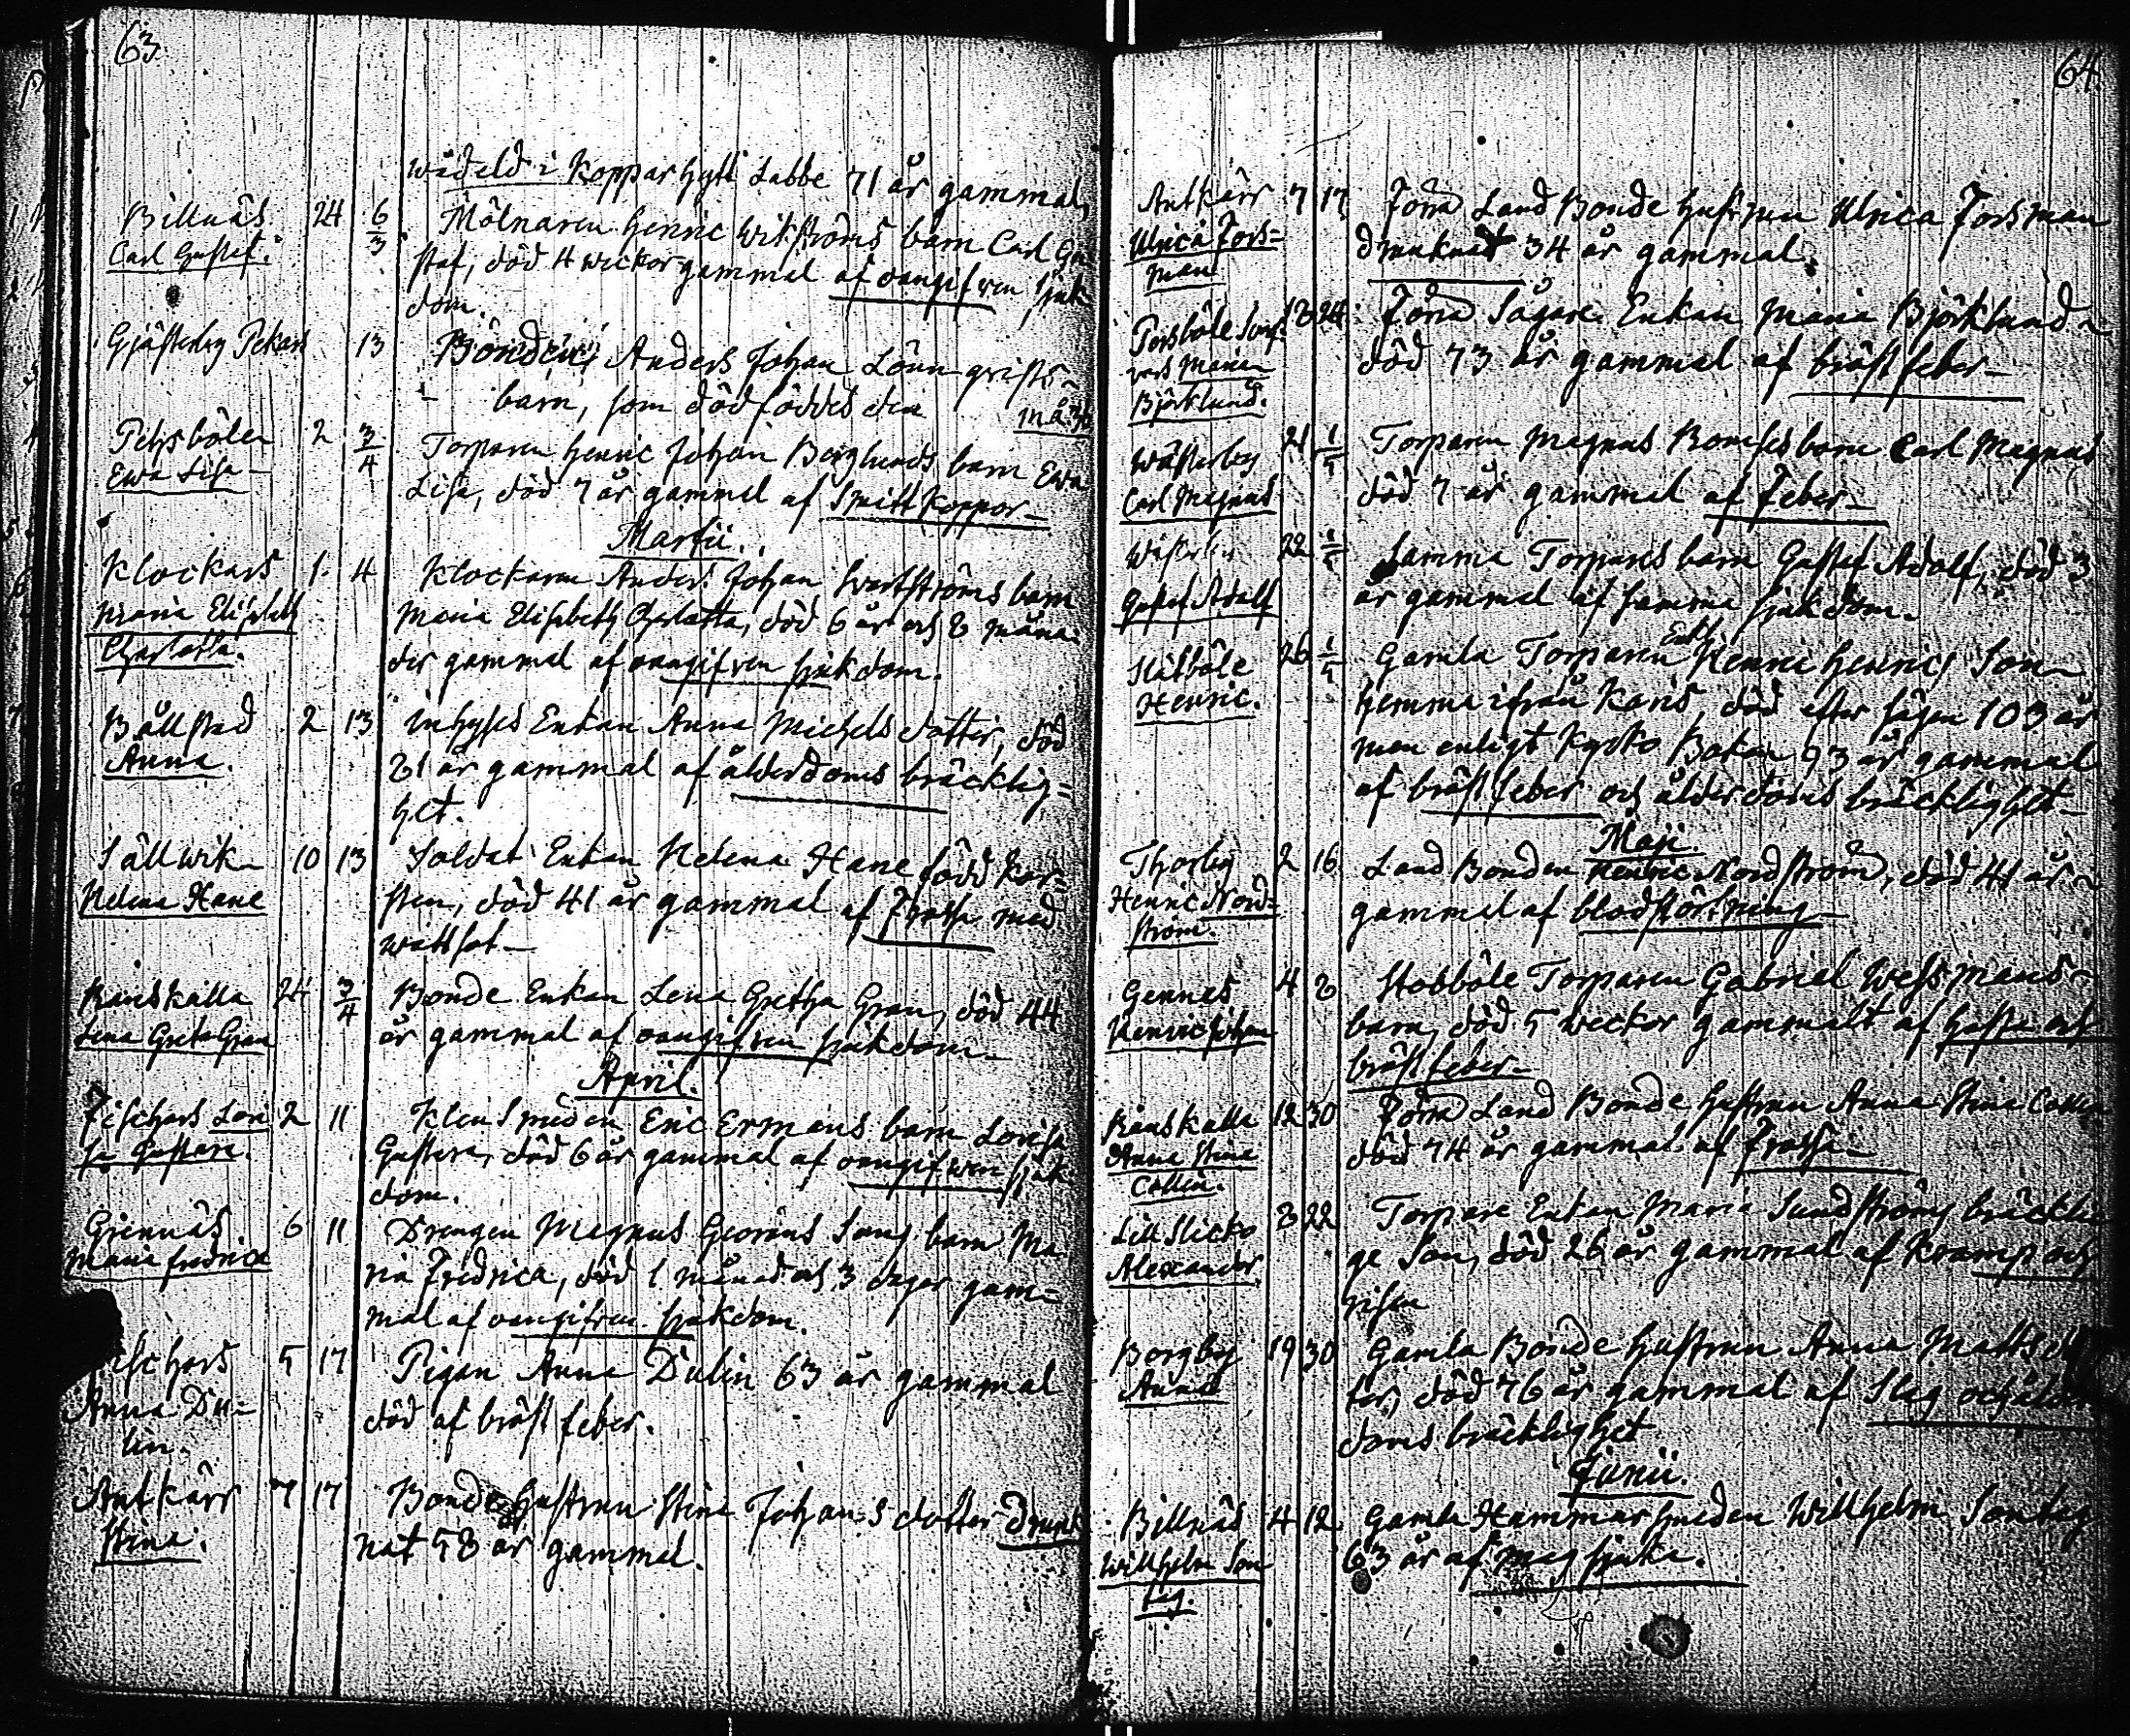 63.
wådeld i Kopparhytt Labbe 71 år gammal,
Billnäs 24 6/3 Mölnaren Henric Wikströms barn Carl Gu
Carl Gustef. staf, död 4 weckor gammal af oangifven sjuk
dom.
Gjästerby Pekars 13 Bonden Anders Johan Lönn
barn, som död föddes den
Pehrsböle 2 3/4 Torparen Henric Johan Berglunds barn Ewa
Ewa Lisa Lisa, död 7 år gammal af Smitt Koppor
Martii.
Klockars 1. 4 Klockaren Anders Johan barn
Maria Elisabeth Maria Elisabeth Charlotta, död 6 år och 8 måna
Charlotta. der gammal af oangifven sjukdom.
Bållstad 2 13 inhyses Enkan Anna Michels dotter, död
Anna. 81 år gammal af ålderdoms bräcklig=
het.
Sällwik 10 13 Soldat Enkan Helena Hane född Kar=
Helena Hane sten, död 41 år gammal af Frossa med
wattsot
Ranskalla 24 3/4 Bonde Enkan Lena Gretha Gran, död 44
Lena Greta Gran år gammal af oangifven sjukdom
April.
Fischars Lovi 2 11 Klensmeden Eric Ermans barn Lovisa
sa Gustava. Gustava, död 6 år gammal af oangifwen sjuk
dom.
Grennäs 6 11 Drengen Magnus Georans Sang barn Ma
Maria fredrica ria Fredrica, död 1 månad och 3 dagar gam=
mal af oangifven sjukdom.
ischars 5 17 Pigan Anna Dulin 63 år gammal
Anna Du= död af bröst feber.
lin.
Antkärr 7 17 Bonde Hustrun Stina Johans dotter drunk
Stina. nat 58 år gammal.
64.
Antkärr 7 17 Förra Land Bonde Hustrun Ulrica Forsman
Ulrica Fors= drunknat 34 år gammal.
man
Persböle 13 24 Förra Sågare Enkan Maria Björklund
Maria död 73 år gammal af bröst feber
Björklund.
Wästerby 21 1/5 Torparen Magnus barn Carl Magnus
Carl Magnus död 7 år gammal af Feber
Wästerby 22 1/5 Samma Torpares barn Gustaf Adolf, död 3
Gustaf Adolf år gammal af samma sjukdom.
Slätböle 26 1/5 Gamla Torparen Enkl Henric Henrics Son
Henric. hemma ifrån Karis, död efter sägen 103 år
men enligt Kyrko Boken 93 år gammal
af bröst feber och ålderdoms bräcklighet
Maji.
Thorby 2 16 Land Bonden Henric Nordström, död 41 år
Henric Nord= gammal af blodstörtning
ström.
Gennäs 4 8 Stobböle Torparen Gabriel Wessmans
Henric Johan barn, död 5 weckor gammalt af hosta och
bröst feber
Ranskalla 12 30 Förra Land Bonde Hustrun Anna Stina Collin
Anna Stina död 74 år gammal af Frossa
Collin.
Lill Slicko 3 22 Torpare Enkan Maria Sundströms bräckli
Alexander ge Son, död 26 år gammal af Kramp och
Borgby 19 30 Gamla Bonde Hustrun Anna Matts dot
Anna ter, död 76 år gammal af Slag och ålder
doms bräcklighet
Junii.
Billnäs 4 12 Gamla Hammarsmeden Willhelm Sontag
Willhelm Son 63 år af mag sjuka.
tag.